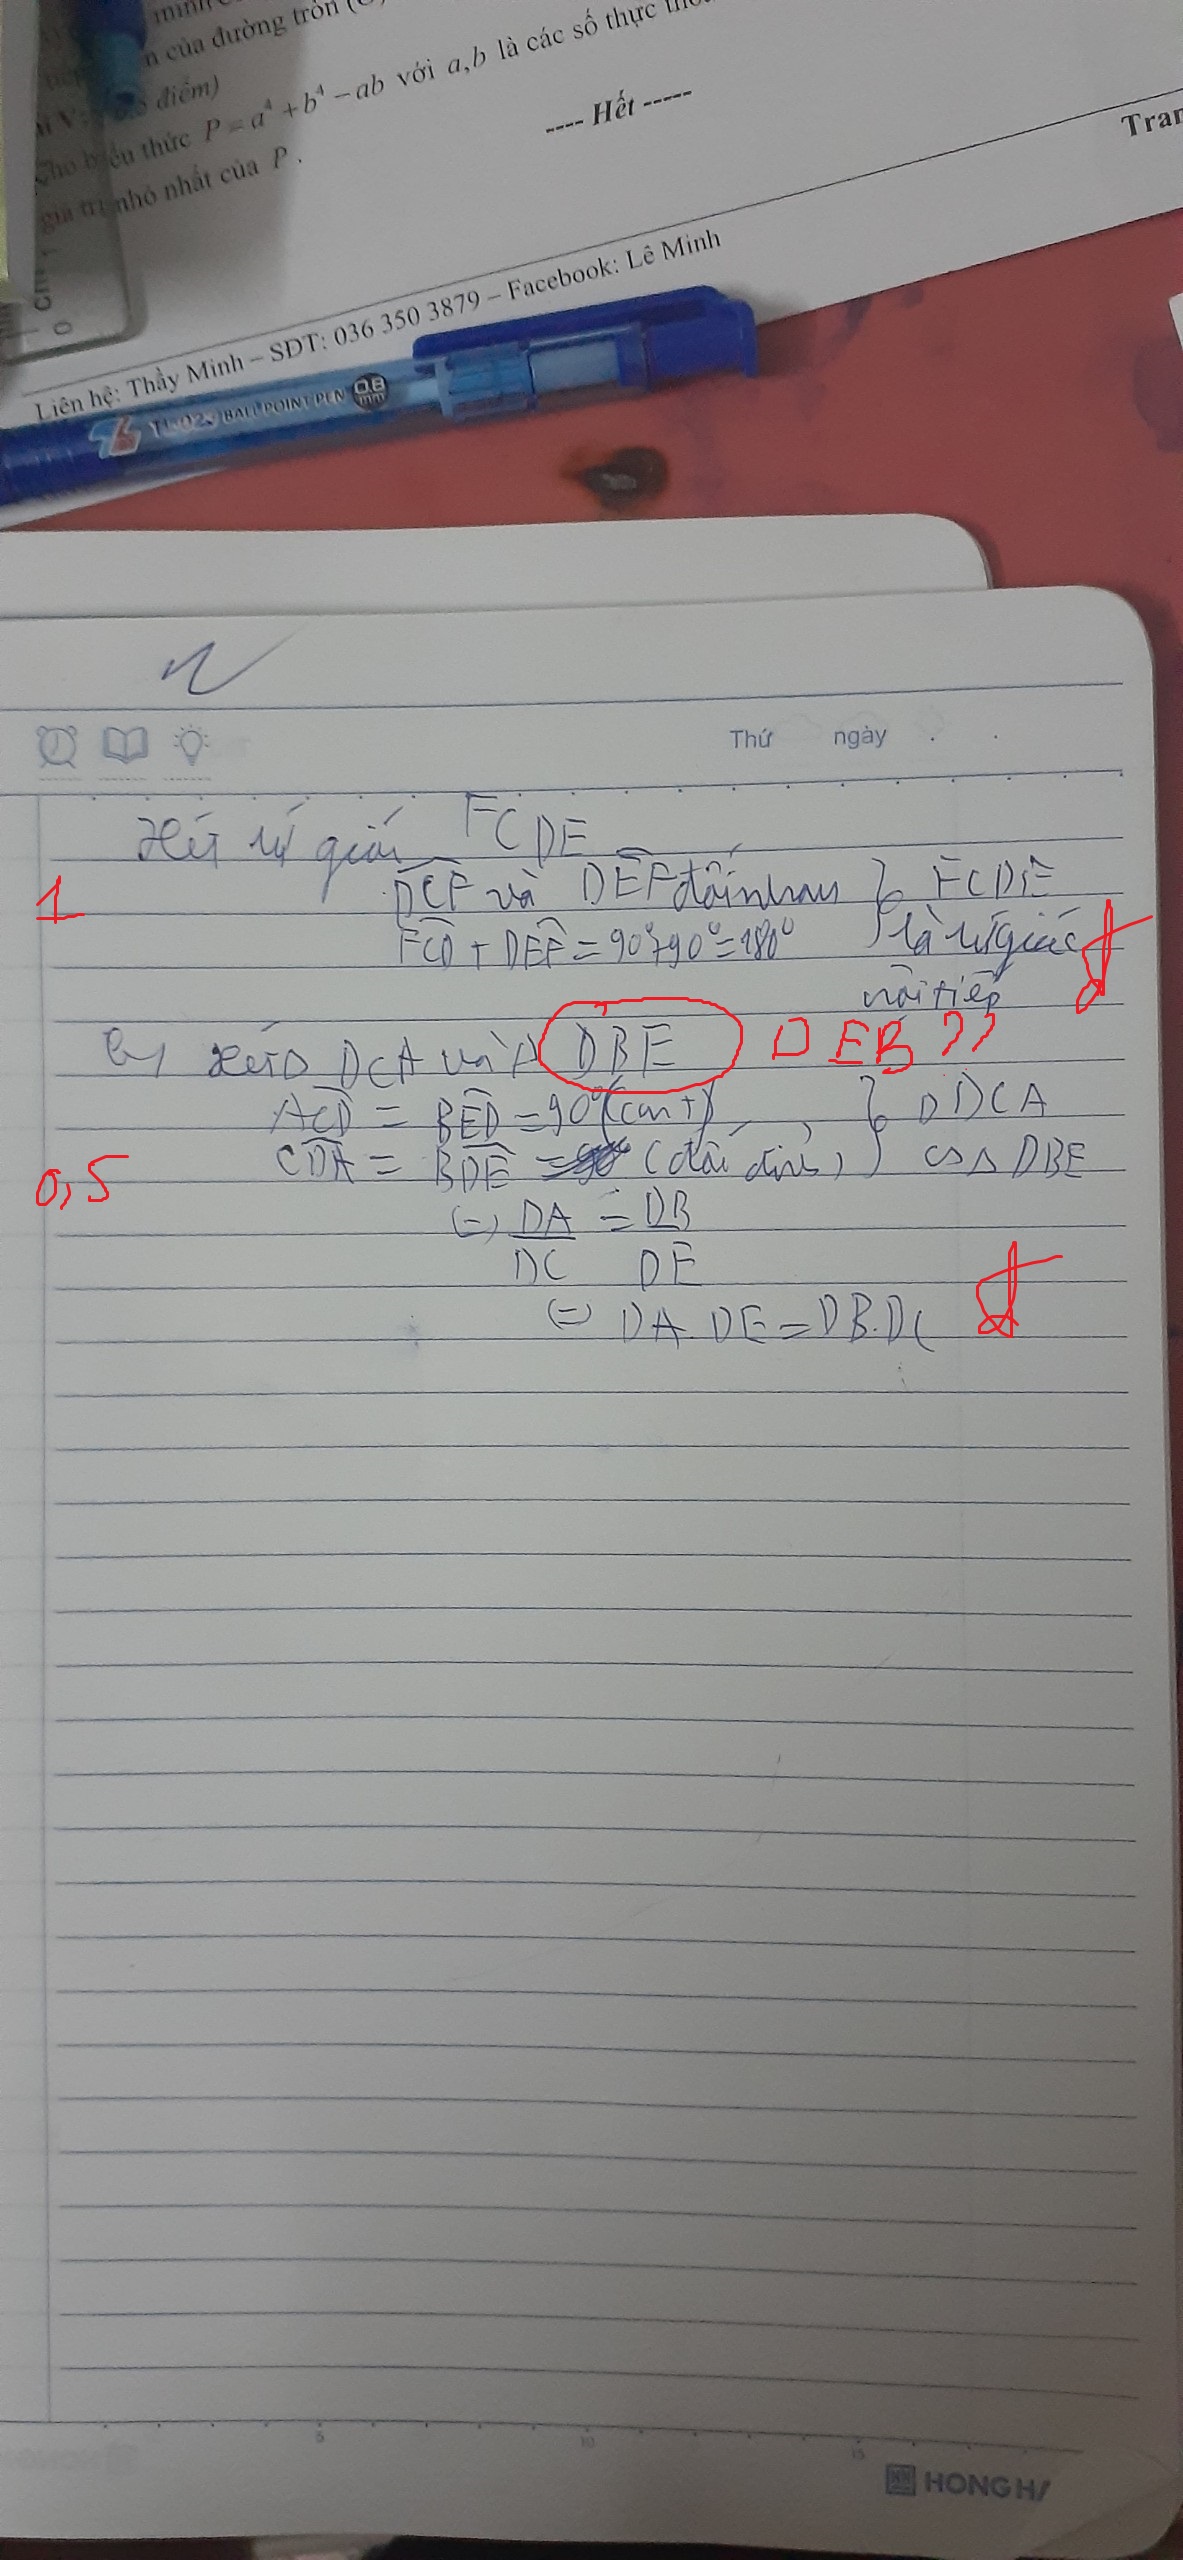 n của đường tròn (
điểm)
thức P = a⁴ + b⁴ – ab với a,b là các số thực
nhỏ nhất của P .
---- Hết -----
Tran
Liên hệ: Thầy Minh – SDT: 036 350 3879 – Facebook: Lê Minh
TL-027 BALL POINT PEN 0.8 mm
Thứ ngày
Xét tứ giác FCDE
1
DCF và DEF đối nhau } FCDE
FCD + DEF = 90° + 90° = 180° là tứ giác
nội tiếp
b) xét Δ DCA và Δ DBE DEB ??
ACD = BED = 90° (cmt) } Δ DCA
0,5
CDA = BDE = (đối đỉnh) ∽ Δ DBE
(=) DA/DC = DB/DE
(=) DA.DE = DB.DC
5 10 15
HONG HA